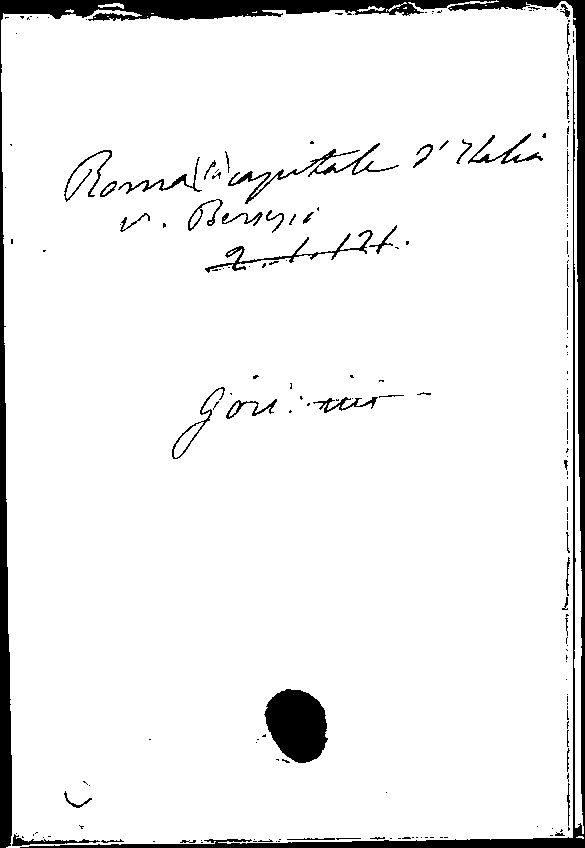 Roma (la) capitale d'Italia
v. Bersezio
2.1.121.
Gori: